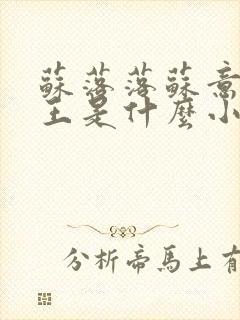 蘇落落蘇意
王是什麼小
分析帝馬上有